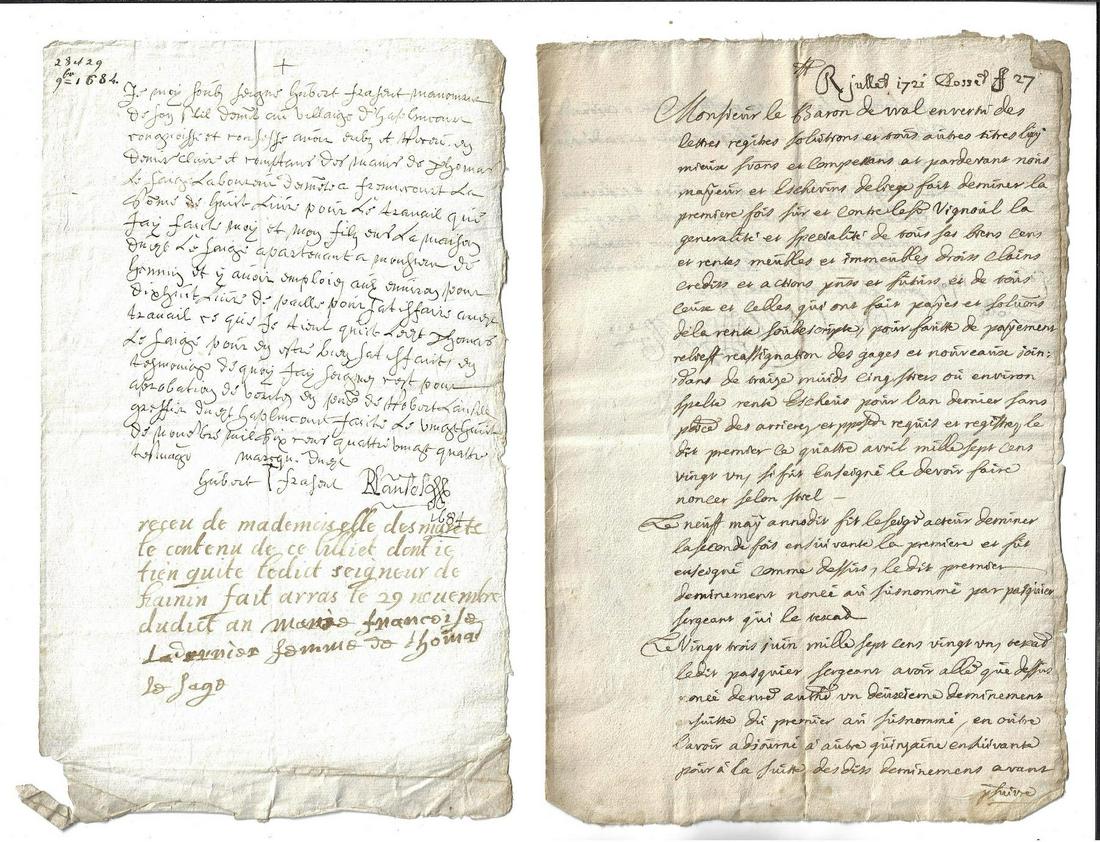 28 et 29
9bre 1684.
Je moy soub signe hubert frasent manouvrie
de son stil dem.t au village d'haplincourt
congnoisse et confesse avoir eub et Receu en
denie claire et comptans des mains de Thomas
Le sage Laboureur dem.t a fremicourt La
Some de huict Livre pour Le travail que
Jay faict moy et mon fils en La maison
dudt Le sage apartenant a monsieur de
hennin et y avoir emploier aux environ pour
dixhuict Livre de paille pour satisfaire audt
travail ce que Je tient quict Ledt Thomas
Le sage pour en estre bien satisfaict en
tesmoing de quoy Jay signer cest pour
aprobation de
greffier dudt haplincourt faicte Le vingt huict
de novebre mil six cens quattre vingt quattre
tesmoing marcq. dudt
hubert T frasent
1684
receu de mademoiselle des
le contenu de ce billiet dont ie
tien quite ledict seigneur de
hainin fait arras le 29 novembre
dudict an marie francoise
femme de thomas
le sage
R juillet 1721 27
Monsieur le Baron de wal enverti des
lettres regibes solutions et tous autres titres luy
mieux svans et Competans at pardevant nous
mayeur et Eschevins de liege fait deminer la
premiere fois sur et contre le sr Vignoul la
generalité et specialité de tous ses biens cens
et rentes meubles et immeubles droits clains
credits et actions pnts et futurs et de tous
ceux et celles qui ont fait payes et solutions
de la rente soubescripte, pour faulte de payement
relieff reassignation des gages et nouveaux join:
dans de traize muids cinq stiers ou environ
spelte rente Escheus pour l'an dernier sans
des arrieres, et requis et registre, le
dit premier ce quattre avril mille sept cens
vingt un, si fut Enseigné le devoir faire
noncer selon stiel —
Le neuff may annodit fit le seigr acteur deminer
la seconde fois ensuivante la premiere et fut
enseigné comme dessus, le dit premier
deminement noncé au susnommé par pasquier
sergeant qui le rescad
Le vingt trois juin mille sept cens vingt un, rescad
ledit pasquier sergeant avoir allé que dessus
noncé un deuxieme deminement
ensuitte du premier au susnommé, en outre
l'avoir adjourné a autre quinzaine ensuivante
pour à la suitte des dits deminement avant
psuivre